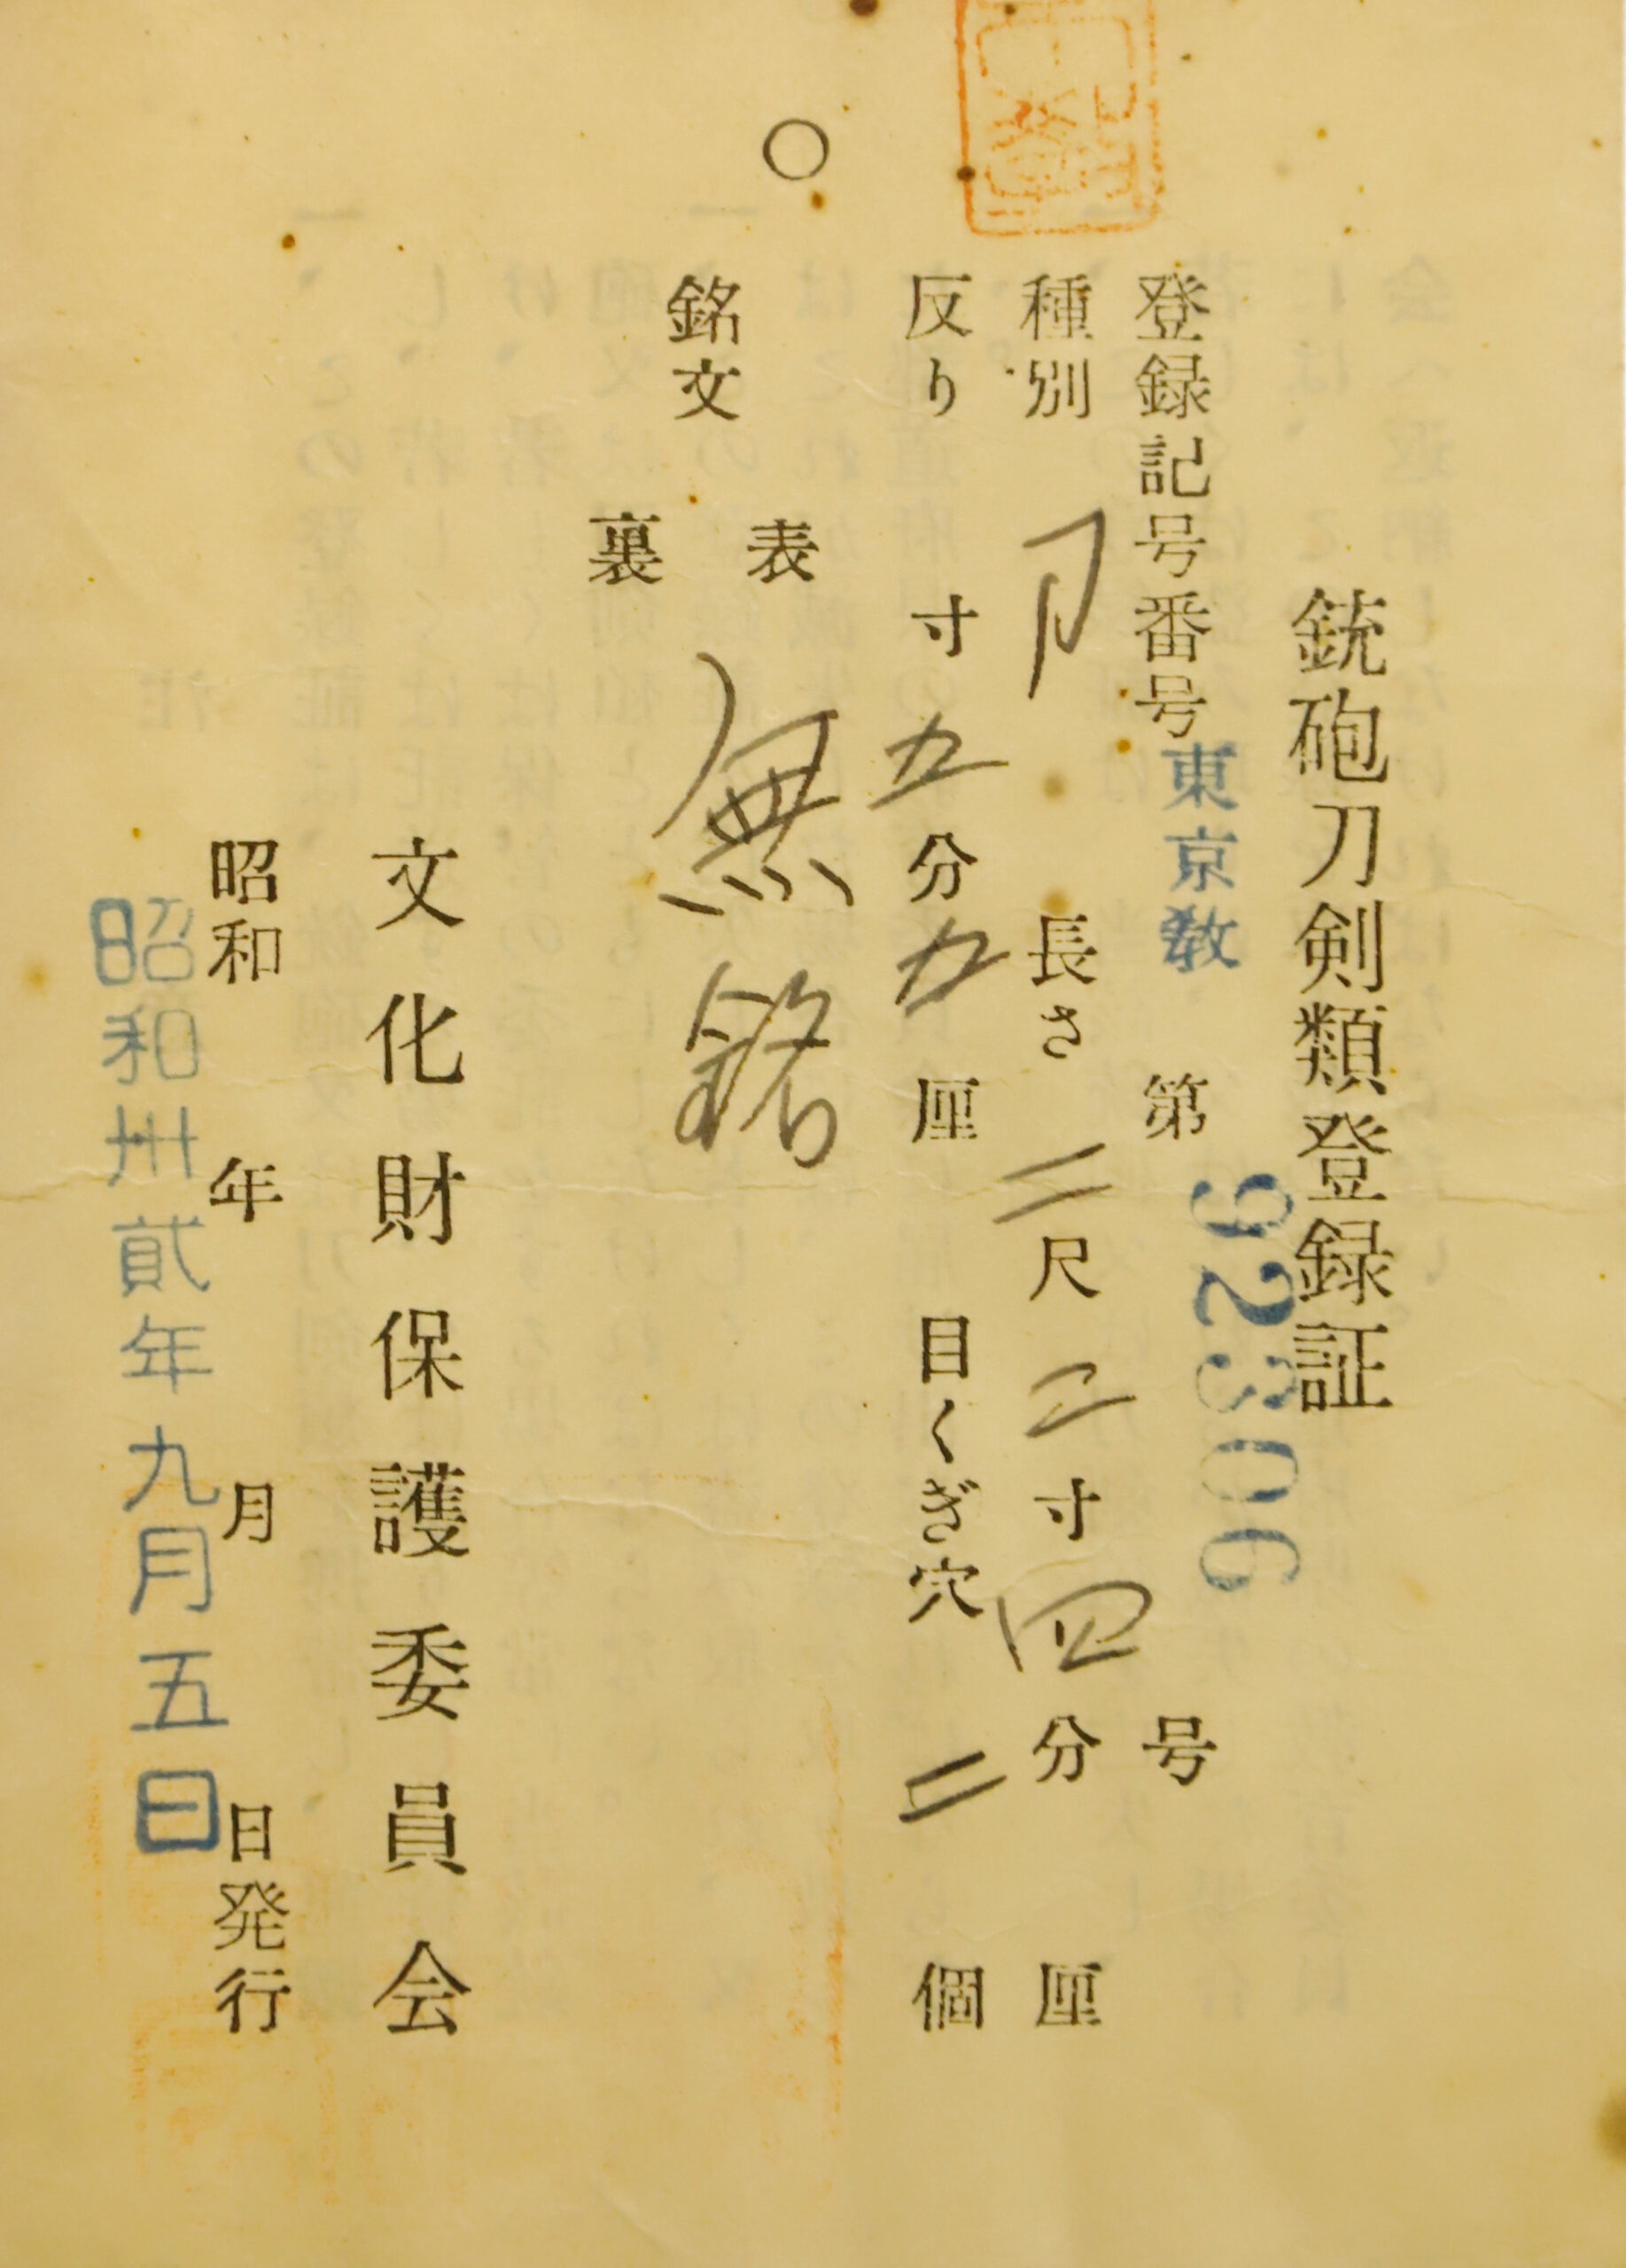 銃砲刀剣類登録証
登録記号番号 東京教 第 92306 号
種別 刀 長さ 二尺二寸四分 厘
反り 寸五分五厘 目くぎ穴 二個
○
表
無銘
銘文
裏
文化財保護委員会
昭和 年 月 日発行
昭和卅貳年九月五日